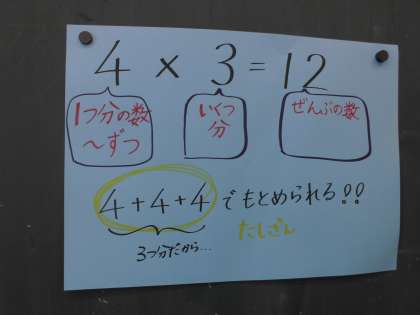 4 × 3 = 12
1つ分の数
～ずつ
いくつ
分
ぜんぶの数
4+4+4でもとめられる!!
たしざん
3つ分だから...